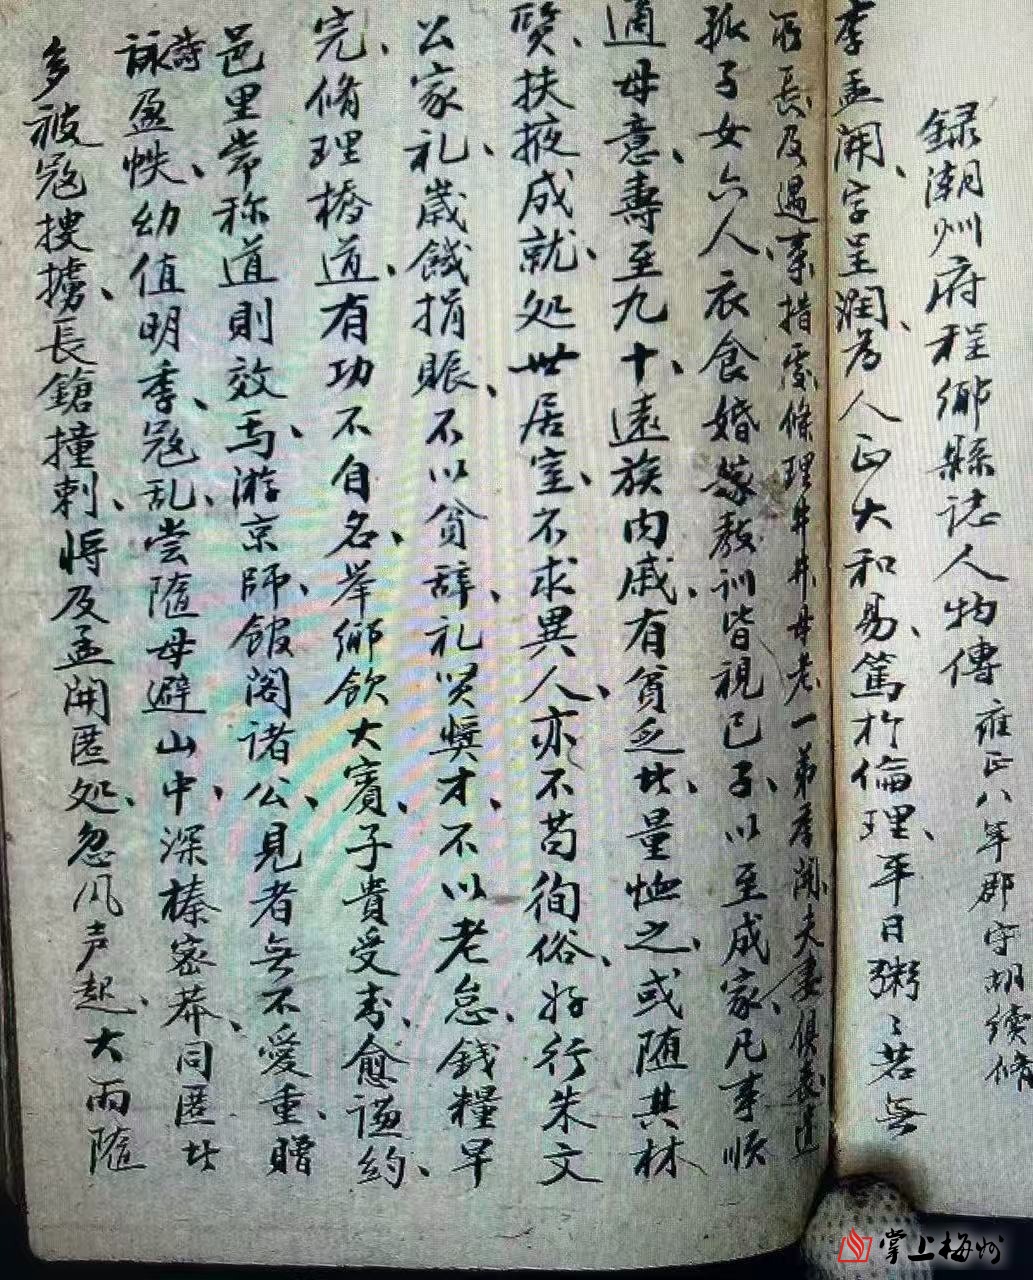 録潮州府程鄉縣誌人物傳 雍正八年郡守胡續修
李孟開、字呈潤、為人正大和易、篤於倫理、平日粥〻若無
所長及遇事措處條理井井母老一弟孝開夫妻俱喪遺
孤子女六人、衣食婚嫁教訓皆視已子、以至成家、凡事順
適母意、壽至九十、遠族內戚、有貧乏者、量恤之、或随其材
質、扶掖成就、処世居室、不求異人、亦不苟徇俗、好行朱文
公家礼、歲饑捐賑、不以貧辞、礼賢奬才、不以老怠、錢糧早
完、脩理橋道、有功不自名、举鄉飲大賓、子貴受封、愈謙約、
邑里常称道則效焉、游京師、館阁诸公、見者无不愛重、贈
詩詠盈帙、幼值明季、冦乱、尝隨母避山中、深榛密莽、同匿者
多被冦搜擄、長鎗撞刺、将及孟開匿処、忽风声起、大雨隨
掌上梅州